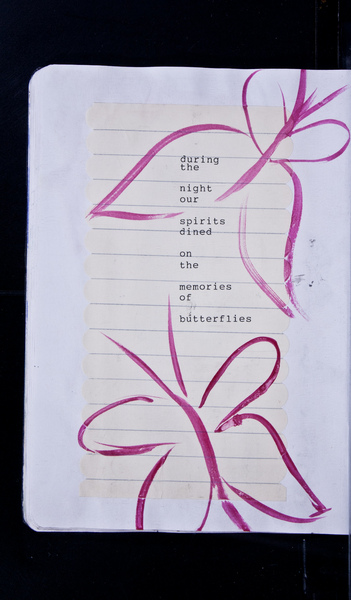 during
the
night
our
spirits
dined
on
the
memories
of
butterflies